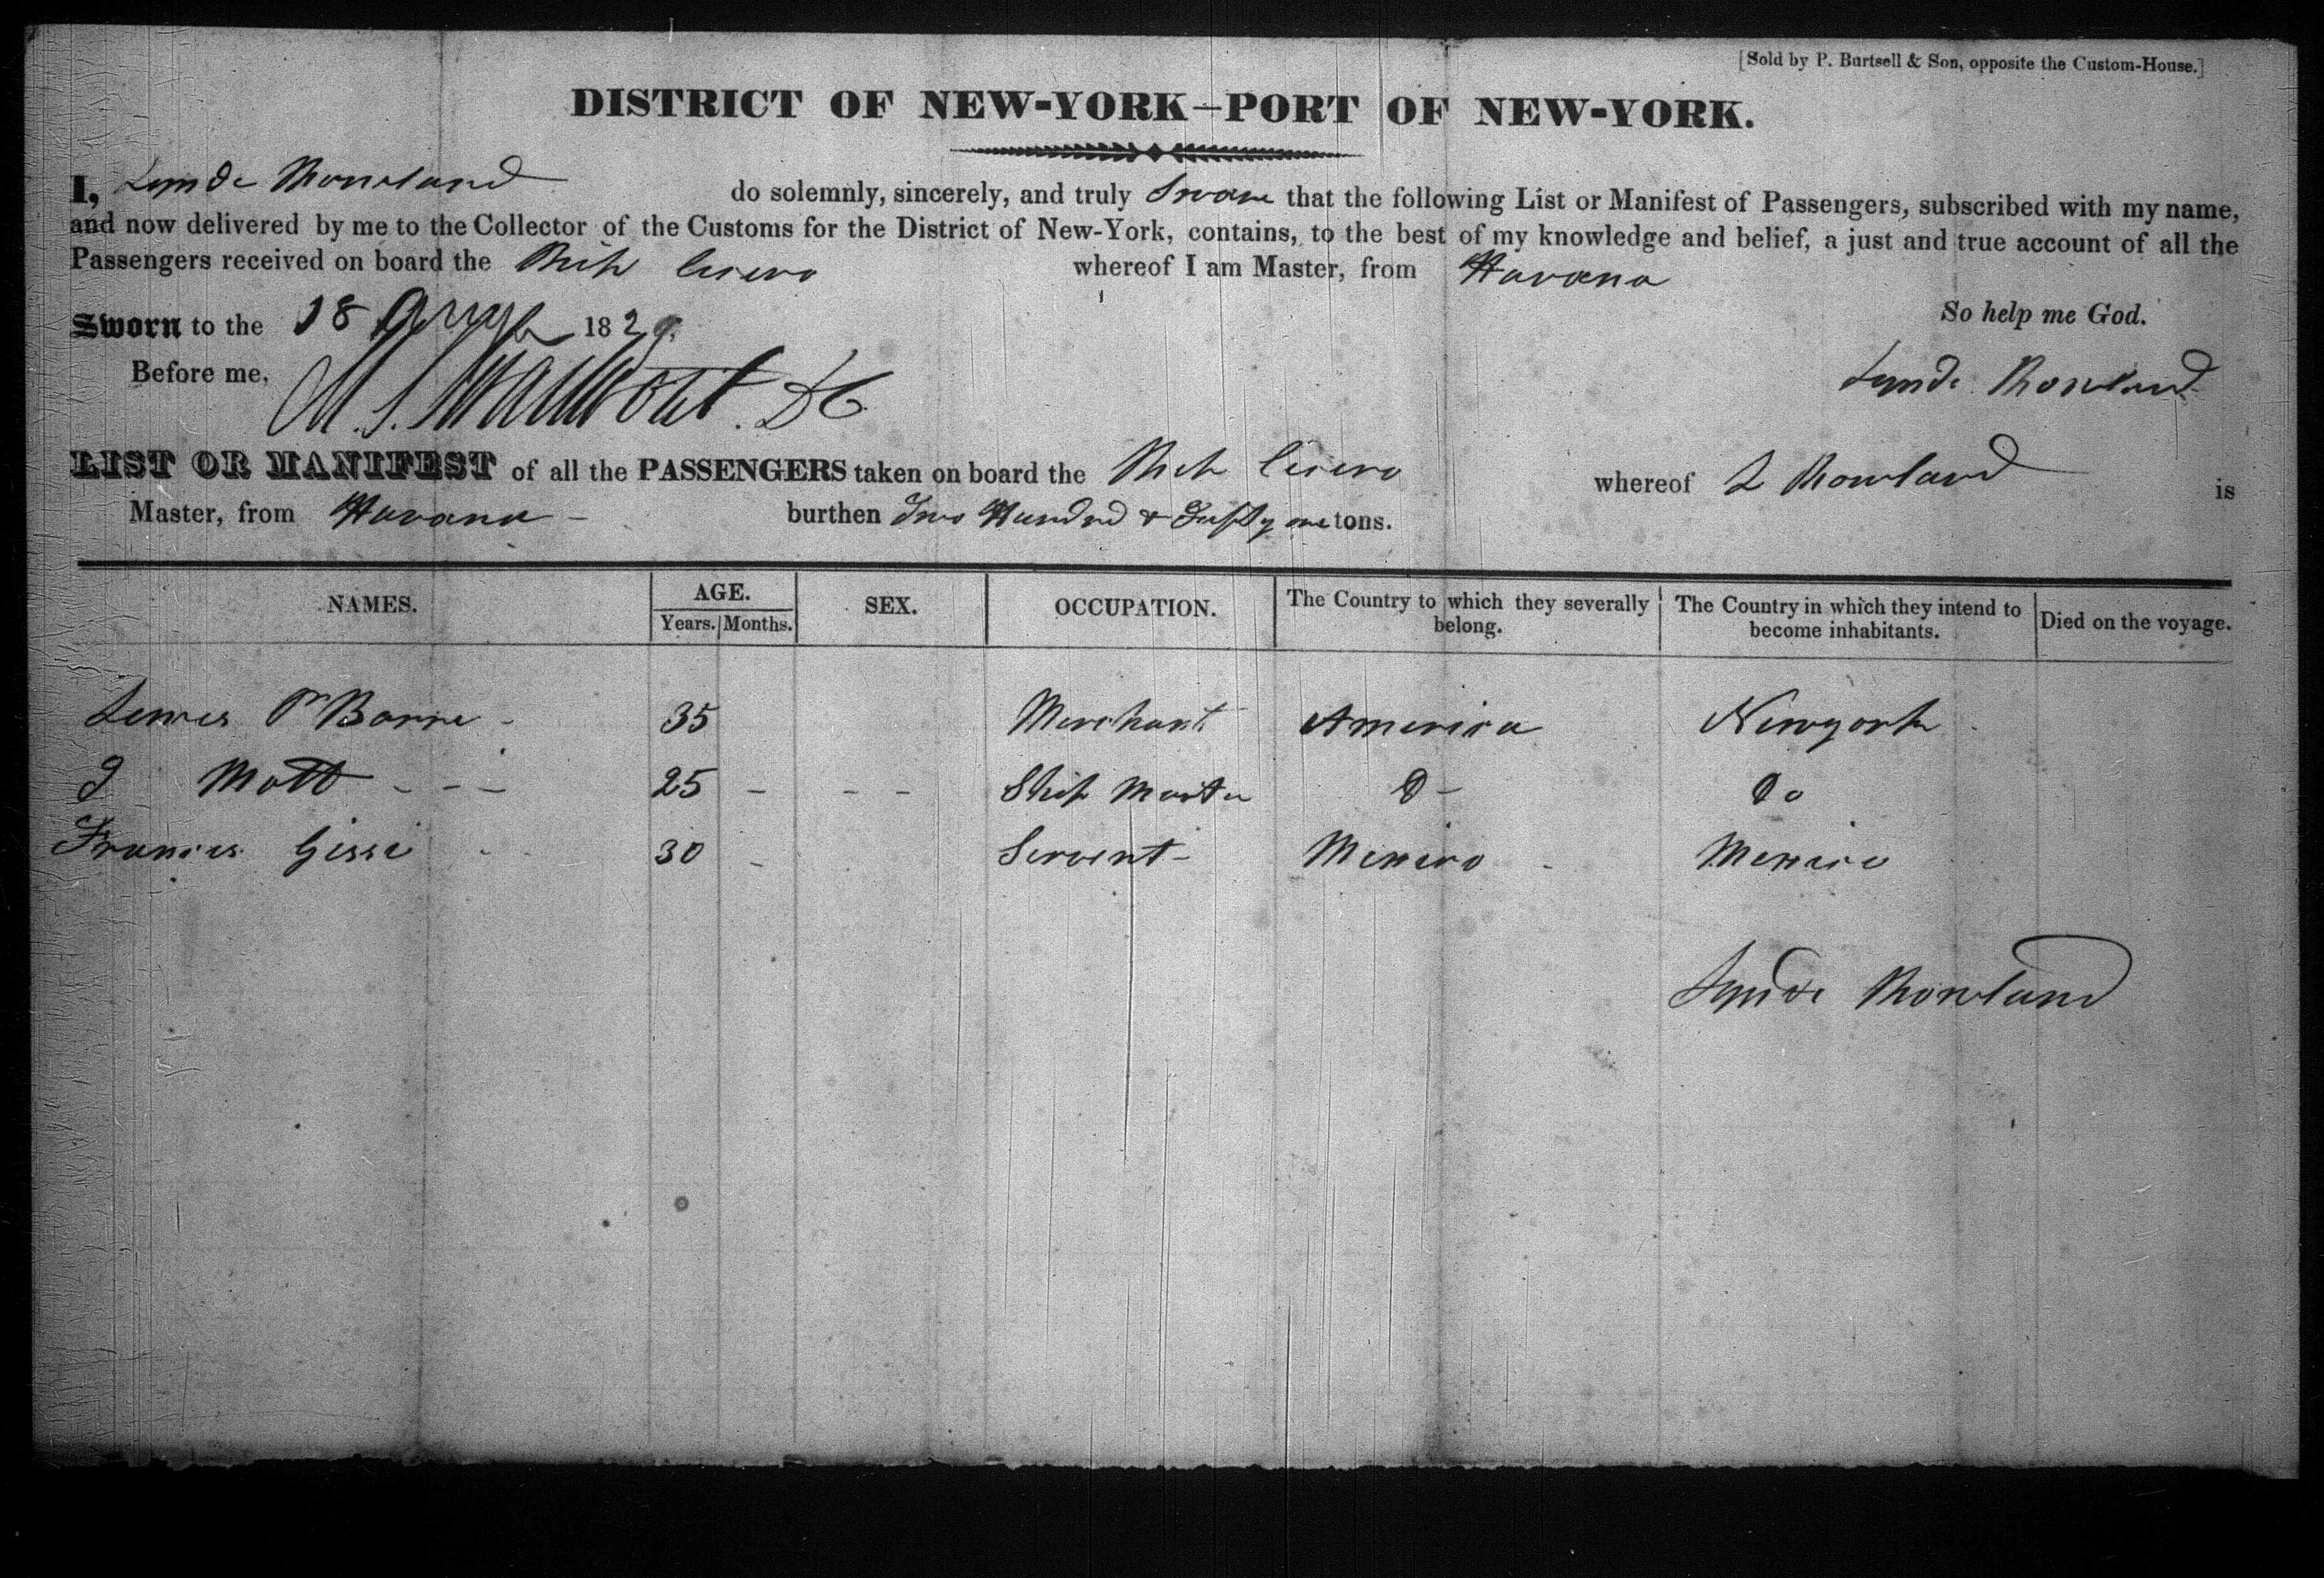 [Sold by P. Burtsell & Son, opposite the Custom-House.]
DISTRICT OF NEW-YORK—PORT OF NEW-YORK.
I, Lynde Rowland do solemnly, sincerely, and truly Swear that the following List or Manifest of Passengers, subscribed with my name,
and now delivered by me to the Collector of the Customs for the District of New-York, contains, to the best of my knowledge and belief, a just and true account of all the
Passengers received on board the Cicero whereof I am Master, from Havana
So help me God.
Sworn to the 18 1829
Before me,
Lynde Rowland
LIST OR MANIFEST of all the PASSENGERS taken on board the Cicero whereof L Rowland is
Master, from Havana burthen Two Hundred & Fifty one tons.
NAMES. AGE. SEX. OCCUPATION. The Country to which they severally belong. The Country in which they intend to become inhabitants. Died on the voyage.
Years. Months.
35 Merchant America Newyork
Mott 25 Ship Master Do Do
Francis 30 Servent Mexico Mexico
Lynde Rowland